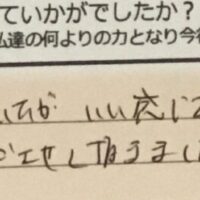 ていかがでしたか？
私達の何よりの力となり今後
が いい感じで
させて頂きまし